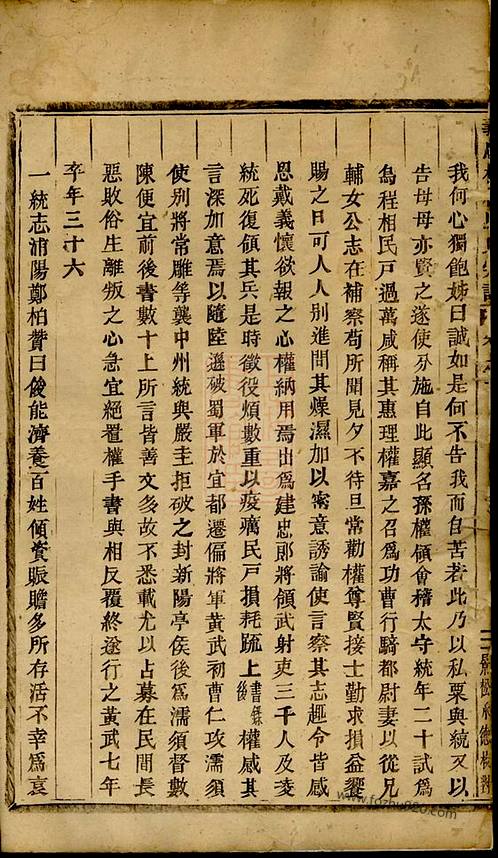 我何心獨飽姊曰誠如是何不告我而自苦若此乃以私粟與統又以
告母母亦賢之遂使分施自此顯名孫權領會稽太守統年二十試爲
烏程相民戶過萬咸稱其惠理權嘉之召爲功曹行騎都尉妻以從兄
輔女公志在補察苟所聞見夕不待旦常勸權尊賢接士勤求損益饗
賜之日可人人別進問其燥濕加以密意誘諭使言察其志趣令皆感
恩戴義懷欲報之心權納用焉出爲建忠郎將領武射吏三千人及淩
統死復領其兵是時徵役煩數重以疫癘民戶損耗疏上書錄後權感其
言深加意焉以隨陸遜破蜀軍於宜都遷偏將軍黃武初曹仁攻濡須
使別將常雕等襲中州統與嚴圭拒破之封新陽亭侯後爲濡須督數
陳便宜前後書數十上所言皆善文多故不悉載尤以占募在民間長
惡敗俗生離叛之心急宜絕置權手書與相反覆終遂行之黃武七年
卒年三十六
一統志浦陽鄭柏贊曰俊能濟養百姓傾資賑贍多所存活不幸爲袁
www.fozhu920.com